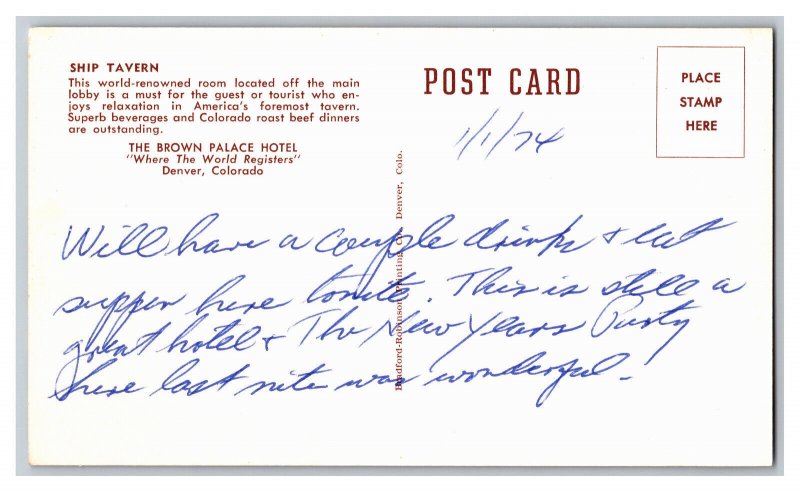 SHIP TAVERN
This world-renowned room located off the main
lobby is a must for the guest or tourist who en-
joys relaxation in America's foremost tavern.
Superb beverages and Colorado roast beef dinners
are outstanding.
THE BROWN PALACE HOTEL
"Where The World Registers"
Denver, Colorado
POST CARD
PLACE
STAMP
HERE
1/1/74
Bradford-Robinson Printing Co., Denver, Colo.
Will have a couple drinks + eat
supper here tonite. This is still a
great hotel + The New Years Party
here last nite was wonderful.